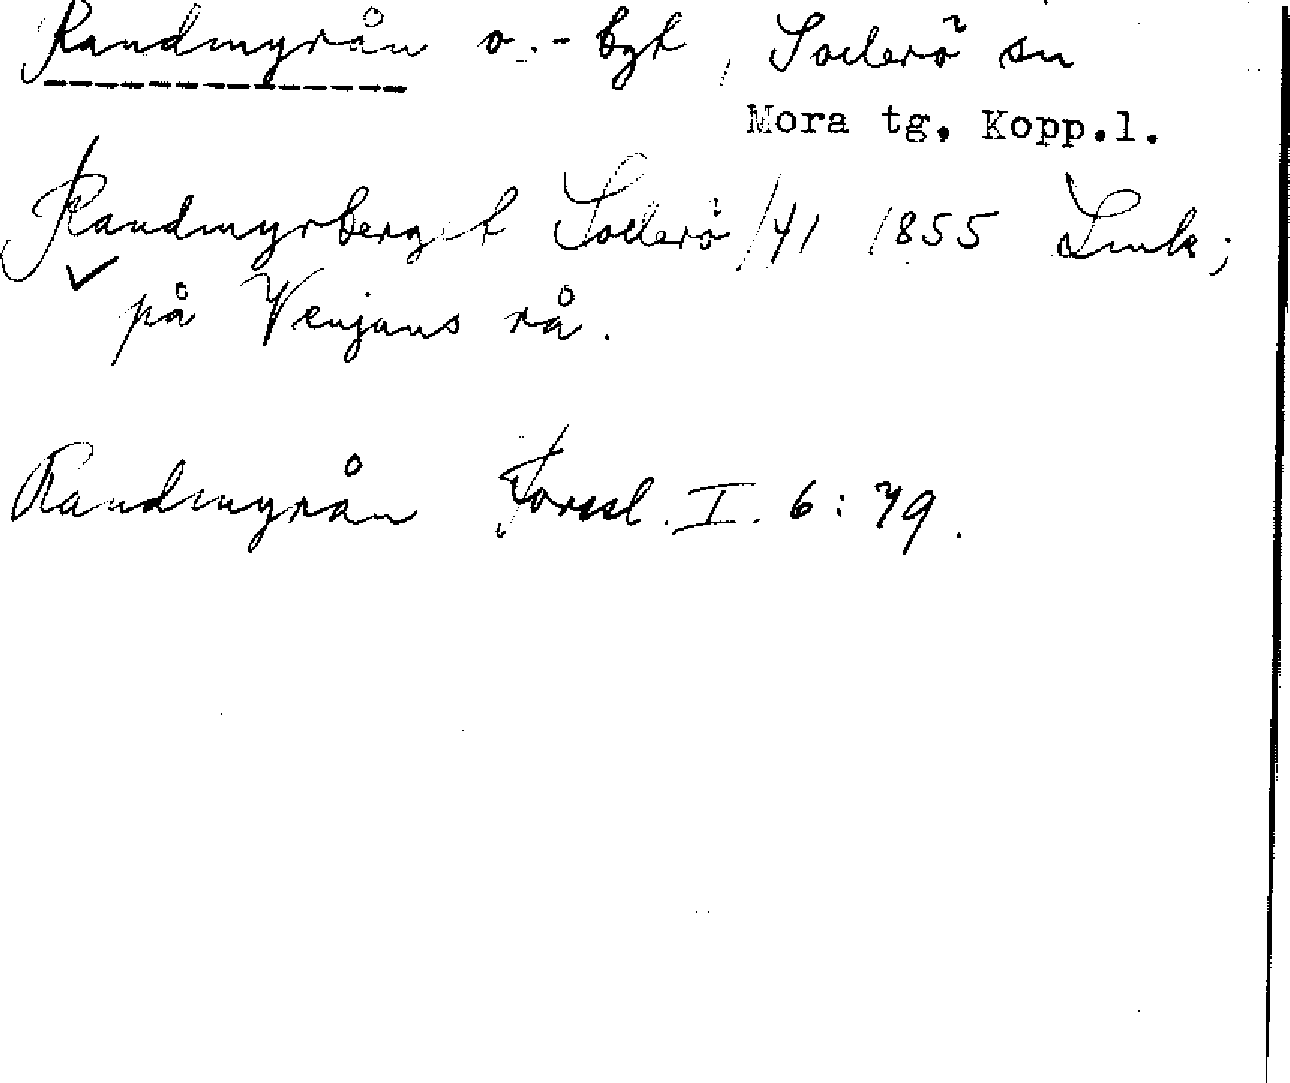 Randmyrån o. -bgt, Sollerö sn
Mora tg. Kopp.l.
Randmyrberget Sollerö /41 1855 Lmk;
på Venjans rå.
Randmyrån Forssl. I. 6:79.